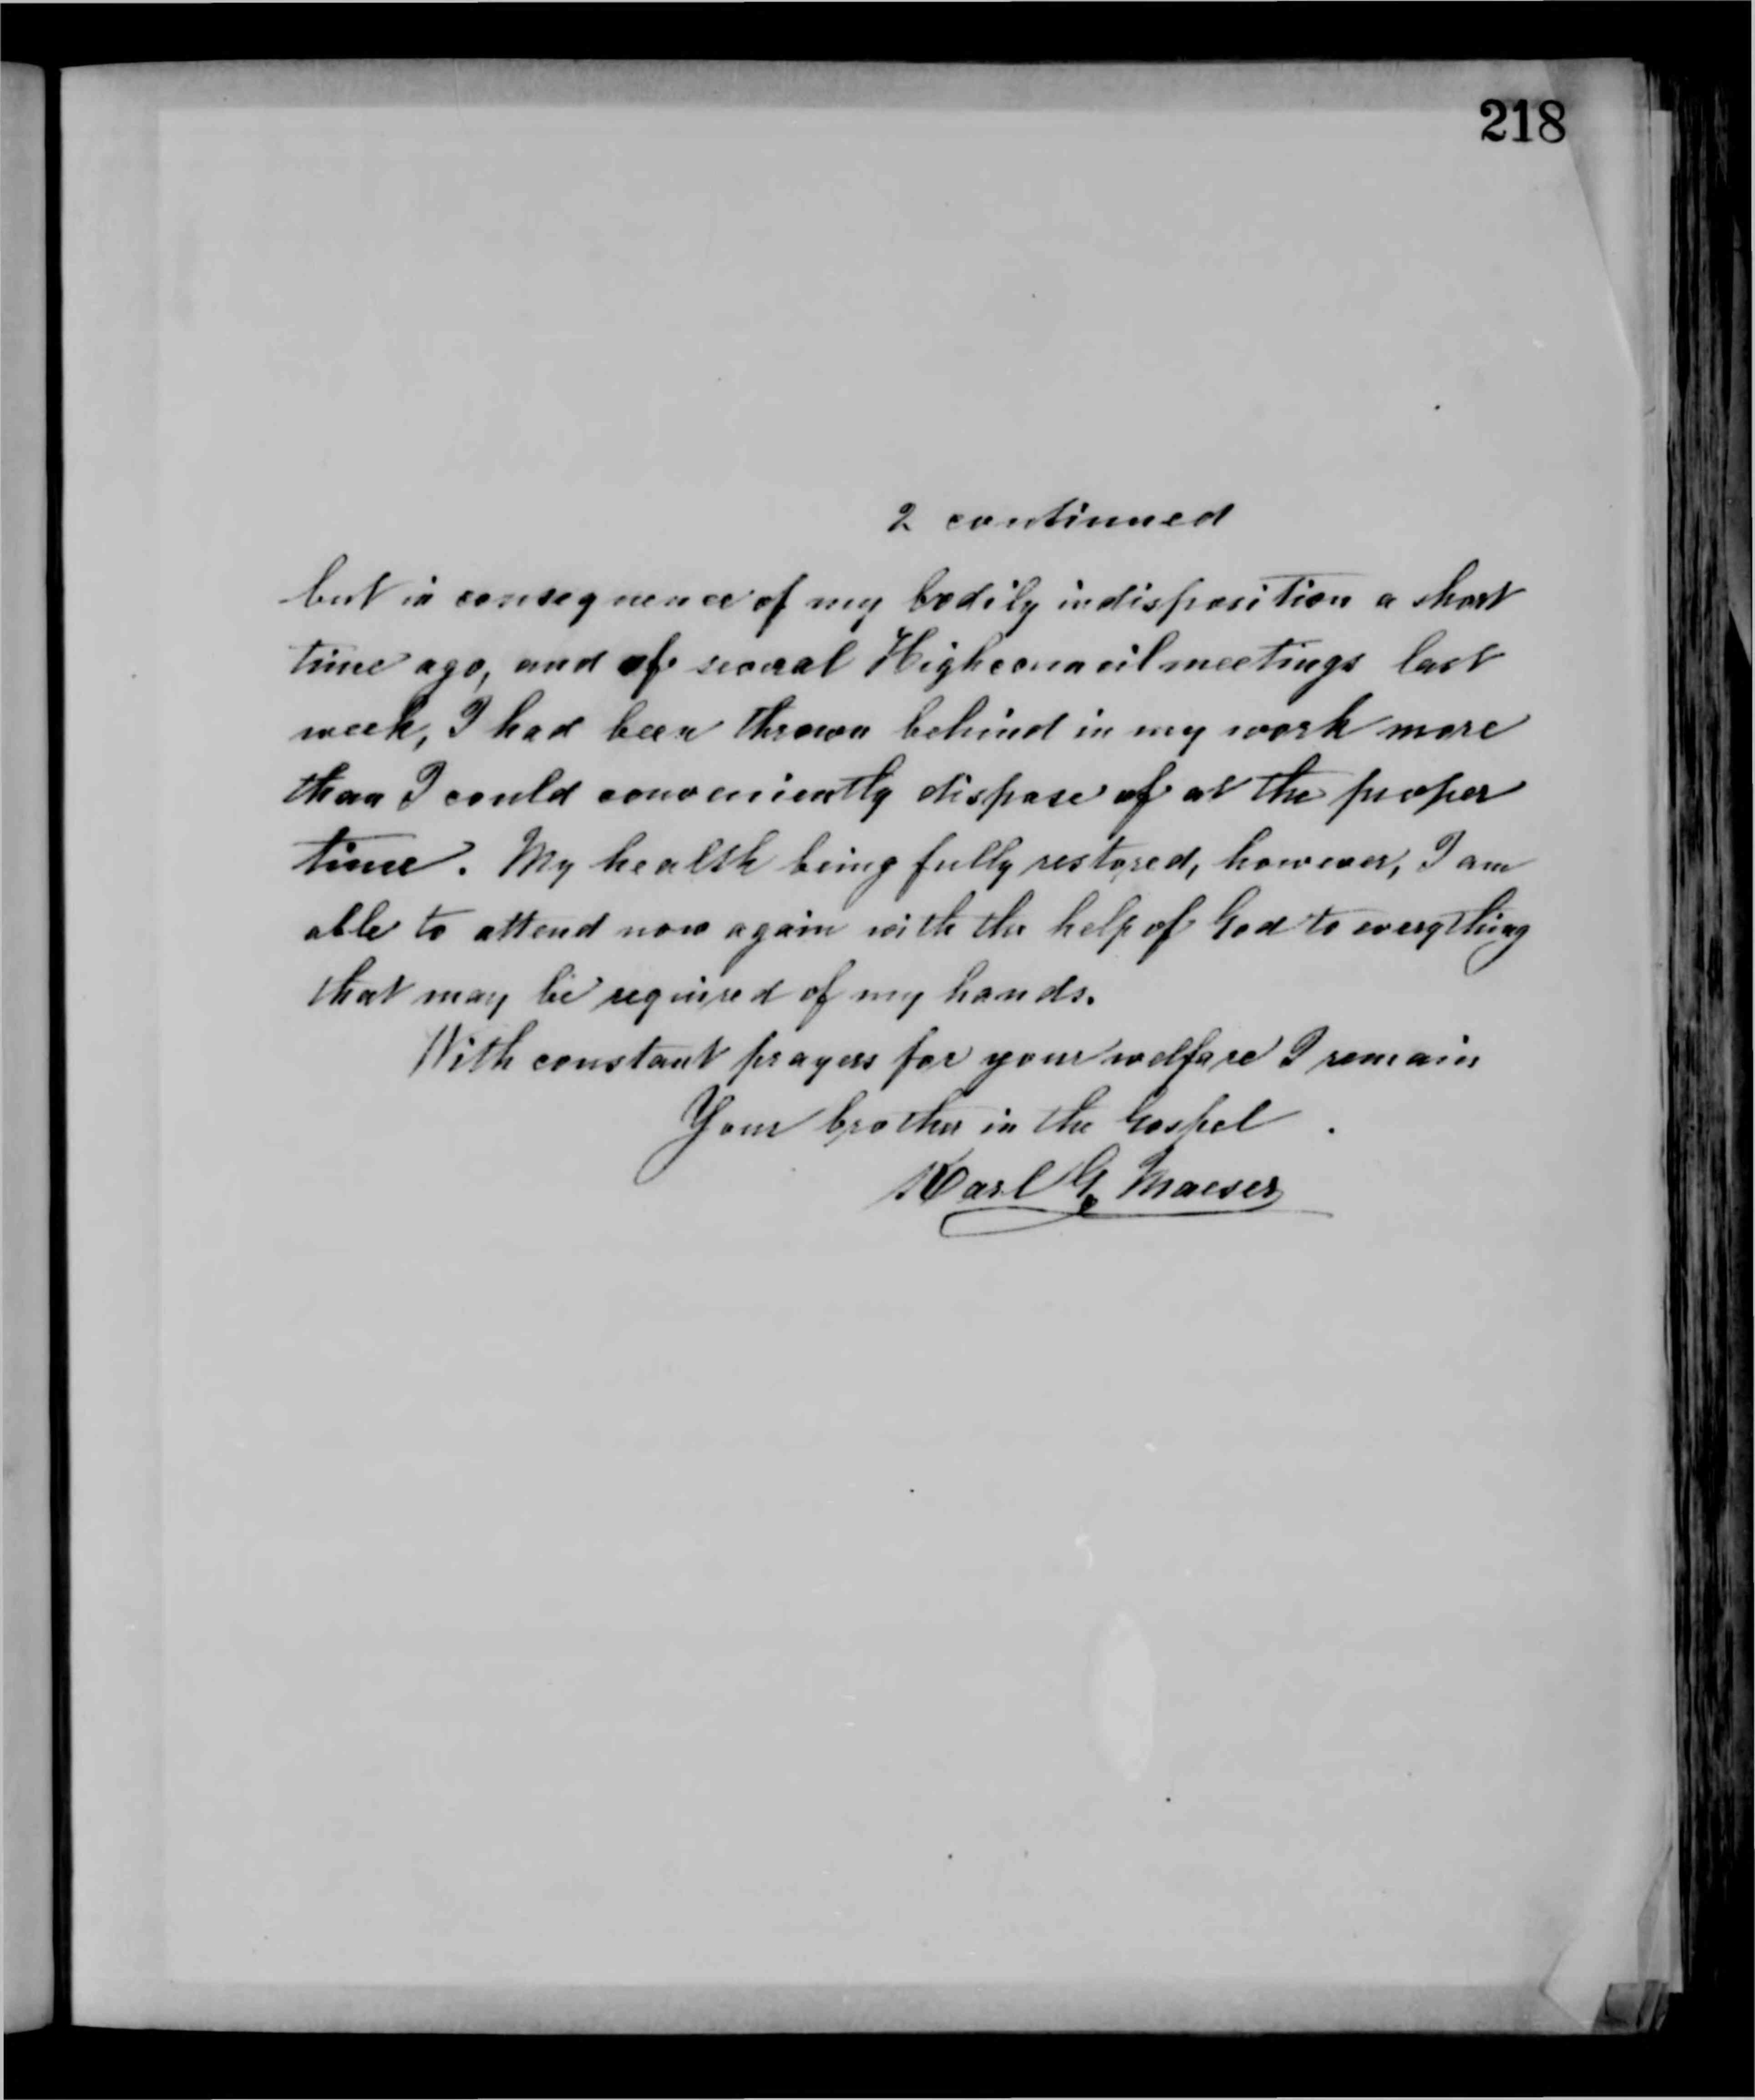 218
2 continued
but in consequence of my bodily indisposition a short
time ago, and of several Highcouncilmeetings last
week, I had been thrown behind in my work more
than I could conveniently dispose of at the proper
time. My health being fully restored, however, I am
able to attend now again with the help of God to everything
that may be required of my hands.
With constant prayers for your welfare I remain
Your brother in the Gospel.
Karl G. Maeser